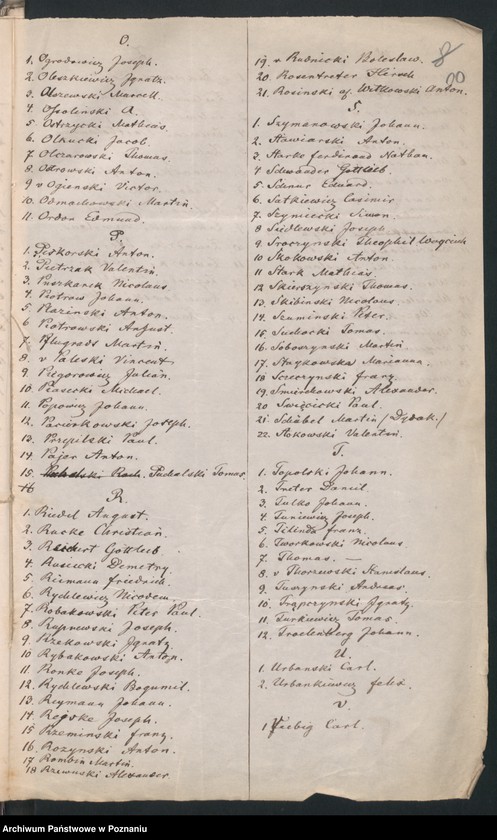 O.
1. Ogrodowicz Joseph.
2. Oleszkiewicz Ignatz.
3. Olszewski Marcell.
4. Ossoliński A.
5. Ostrzycki Mathias
6. Olkucki Jacob.
7. Olczarowski Thomas.
8. Ostrowski Anton.
9 v Ogienski Victor.
10. Odmachowski Martin.
11. Ordon Edmund.
P.
1. Piskorski Anton.
2. Pietrzak Valentin.
3. Puszkarek Nicolaus
4. Piotrow Johann.
5. Paziński Anton.
6 Piotrowski August.
7. Martin.
8. v Paleski Vincent
9. Pregorowicz Julian.
10. Piasecki Michael.
11. Popowicz Johann.
12. Paciorkowski Joseph.
13. Przepilski Paul.
14. Pajer Anton.
15. Puchalski Tomas
16
R
1. Riedel August.
2. Racke Christian.
3. Reichert Gottlieb
4. Rusiecki Demetry
5. Rizmann Friedrich.
6. Rychlewicz Nicodem.
7. Robakowski Peter Paul.
8. Rupnewski Joseph.
9. Rzekowski Ignatz.
10. Rybakowski Anton.
11. Ronke Joseph.
12. Rychlewski Bogumil.
13. Reymann Johann.
14. Rogske Joseph.
15 Rzeminski Franz.
16. Rozynski Anton.
17 Rombin Martin.
18 Rzewuski Alexander.
19. v Rudnicki Boleslaw.
20. Rosentreter Hirsch
21. Rosinski Witkowski Anton.
8
00
S.
1. Szymanowski Johann.
2. Stawiarski Anton.
3. Starke Ferdinand Nathan.
4 Schwander Gottlieb
5. Schnur Eduard.
6. Satkiewicz Casimir
7. Szyniecki Simon.
8 Siedlewski Joseph
9. Sroczynski Theophil Woyciech
10. Skokowski Anton.
11 Stark Mathias.
12. Skierszyński Thomas.
13. Skibiński Nicolaus.
14. Szuminski Peter.
15. Suchocki Tomas.
16. Soboczynski Martin
17. Strykowska Marianna.
18 Szczeczynski Franz.
19. Smiechowski Alexander.
20 Swięcicki Paul.
21. Schäbel Martin /Dyzak./
22. Stokowski Valentin.
T.
1. Topolski Johann.
2. Treter Daniel.
3. Tulko Johann.
4. Tuniewicz Joseph.
5. Tilinda Franz.
6. Tworkowski Nicolaus
7. Thomas. —
8. v Thorzewski Stanislaus.
9. Tuszynski Andreas.
10. Trąpczynski Ignatz.
11. Turkiewicz Tomas.
12. Trochenberg Johann.
U.
1. Urbanski Carl.
2. Urbankiewicz Felix.
V.
1 Fiebig Carl.
Archiwum Państwowe w Poznaniu